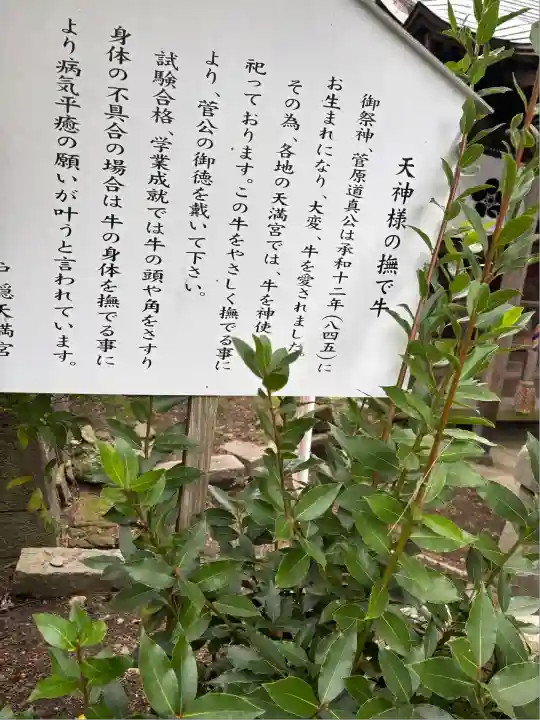 天神様の撫で牛
御祭神、菅原道真公は承和十二年(八四五)に
お生まれになり、大変 牛を愛されました。
その為、各地の天満宮では、牛を神使
祀っております。この牛をやさしく撫でる事に
より、菅公の御徳を戴いて下さい。
試験合格、学業成就では牛の頭や角をさすり
身体の不具合の場合は牛の身体を撫でる事に
より病気平癒の願いが叶うと言われています。
隠天満宮